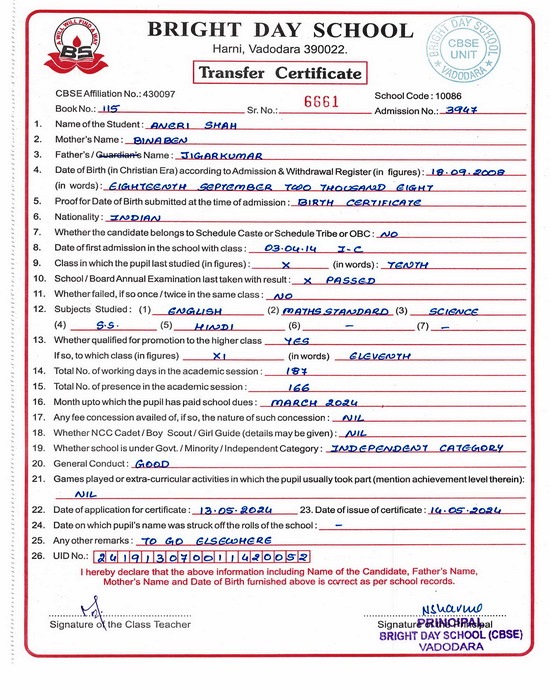 A WILL WILL FIND A WAY
BS
BRIGHT DAY SCHOOL
Harni, Vadodara 390022.
Transfer Certificate
BRIGHT DAY SCHOOL
CBSE
UNIT
VADODARA
CBSE Affiliation No.: 430097 School Code : 10086
Book No.: 115 Sr. No.: 6661 Admission No.: 3947
1. Name of the Student : ANERI SHAH
2. Mother's Name : BINABEN
3. Father's / Guardian's Name : JIGARKUMAR
4. Date of Birth (in Christian Era) according to Admission & Withdrawal Register (in figures) : 18.09.2008
(in words) : EIGHTEENTH SEPTEMBER TWO THOUSAND EIGHT
5. Proof for Date of Birth submitted at the time of admission : BIRTH CERTIFICATE
6. Nationality : INDIAN
7. Whether the candidate belongs to Schedule Caste or Schedule Tribe or OBC : NO
8. Date of first admission in the school with class : 03.04.14 I-C
9. Class in which the pupil last studied (in figures) : X (in words) : TENTH
10. School / Board Annual Examination last taken with result : X PASSED
11. Whether failed, if so once / twice in the same class : NO
12. Subjects Studied : (1) ENGLISH (2) MATHS STANDARD (3) SCIENCE
(4) S.S. (5) HINDI (6) – (7) –
13. Whether qualified for promotion to the higher class YES
If so, to which class (in figures) XI (in words) ELEVENTH
14. Total No. of working days in the academic session : 187
15. Total No. of presence in the academic session : 166
16. Month upto which the pupil has paid school dues : MARCH 2024
17. Any fee concession availed of, if so, the nature of such concession : NIL
18. Whether NCC Cadet / Boy Scout / Girl Guide (details may be given) : NIL
19. Whether school is under Govt. / Minority / Independent Category : INDEPENDENT CATEGORY
20. General Conduct : GOOD
21. Games played or extra-curricular activities in which the pupil usually took part (mention achievement level therein):
NIL
22. Date of application for certificate : 13.05.2024 23. Date of issue of certificate : 14.05.2024
24. Date on which pupil's name was struck off the rolls of the school : –
25. Any other remarks : TO GO ELSEWHERE
26. UID No.: 241913070011420052
I hereby declare that the above information including Name of the Candidate, Father's Name,
Mother's Name and Date of Birth furnished above is correct as per school records.
Signature of the Class Teacher Signature of the Principal
PRINCIPAL
BRIGHT DAY SCHOOL (CBSE)
VADODARA